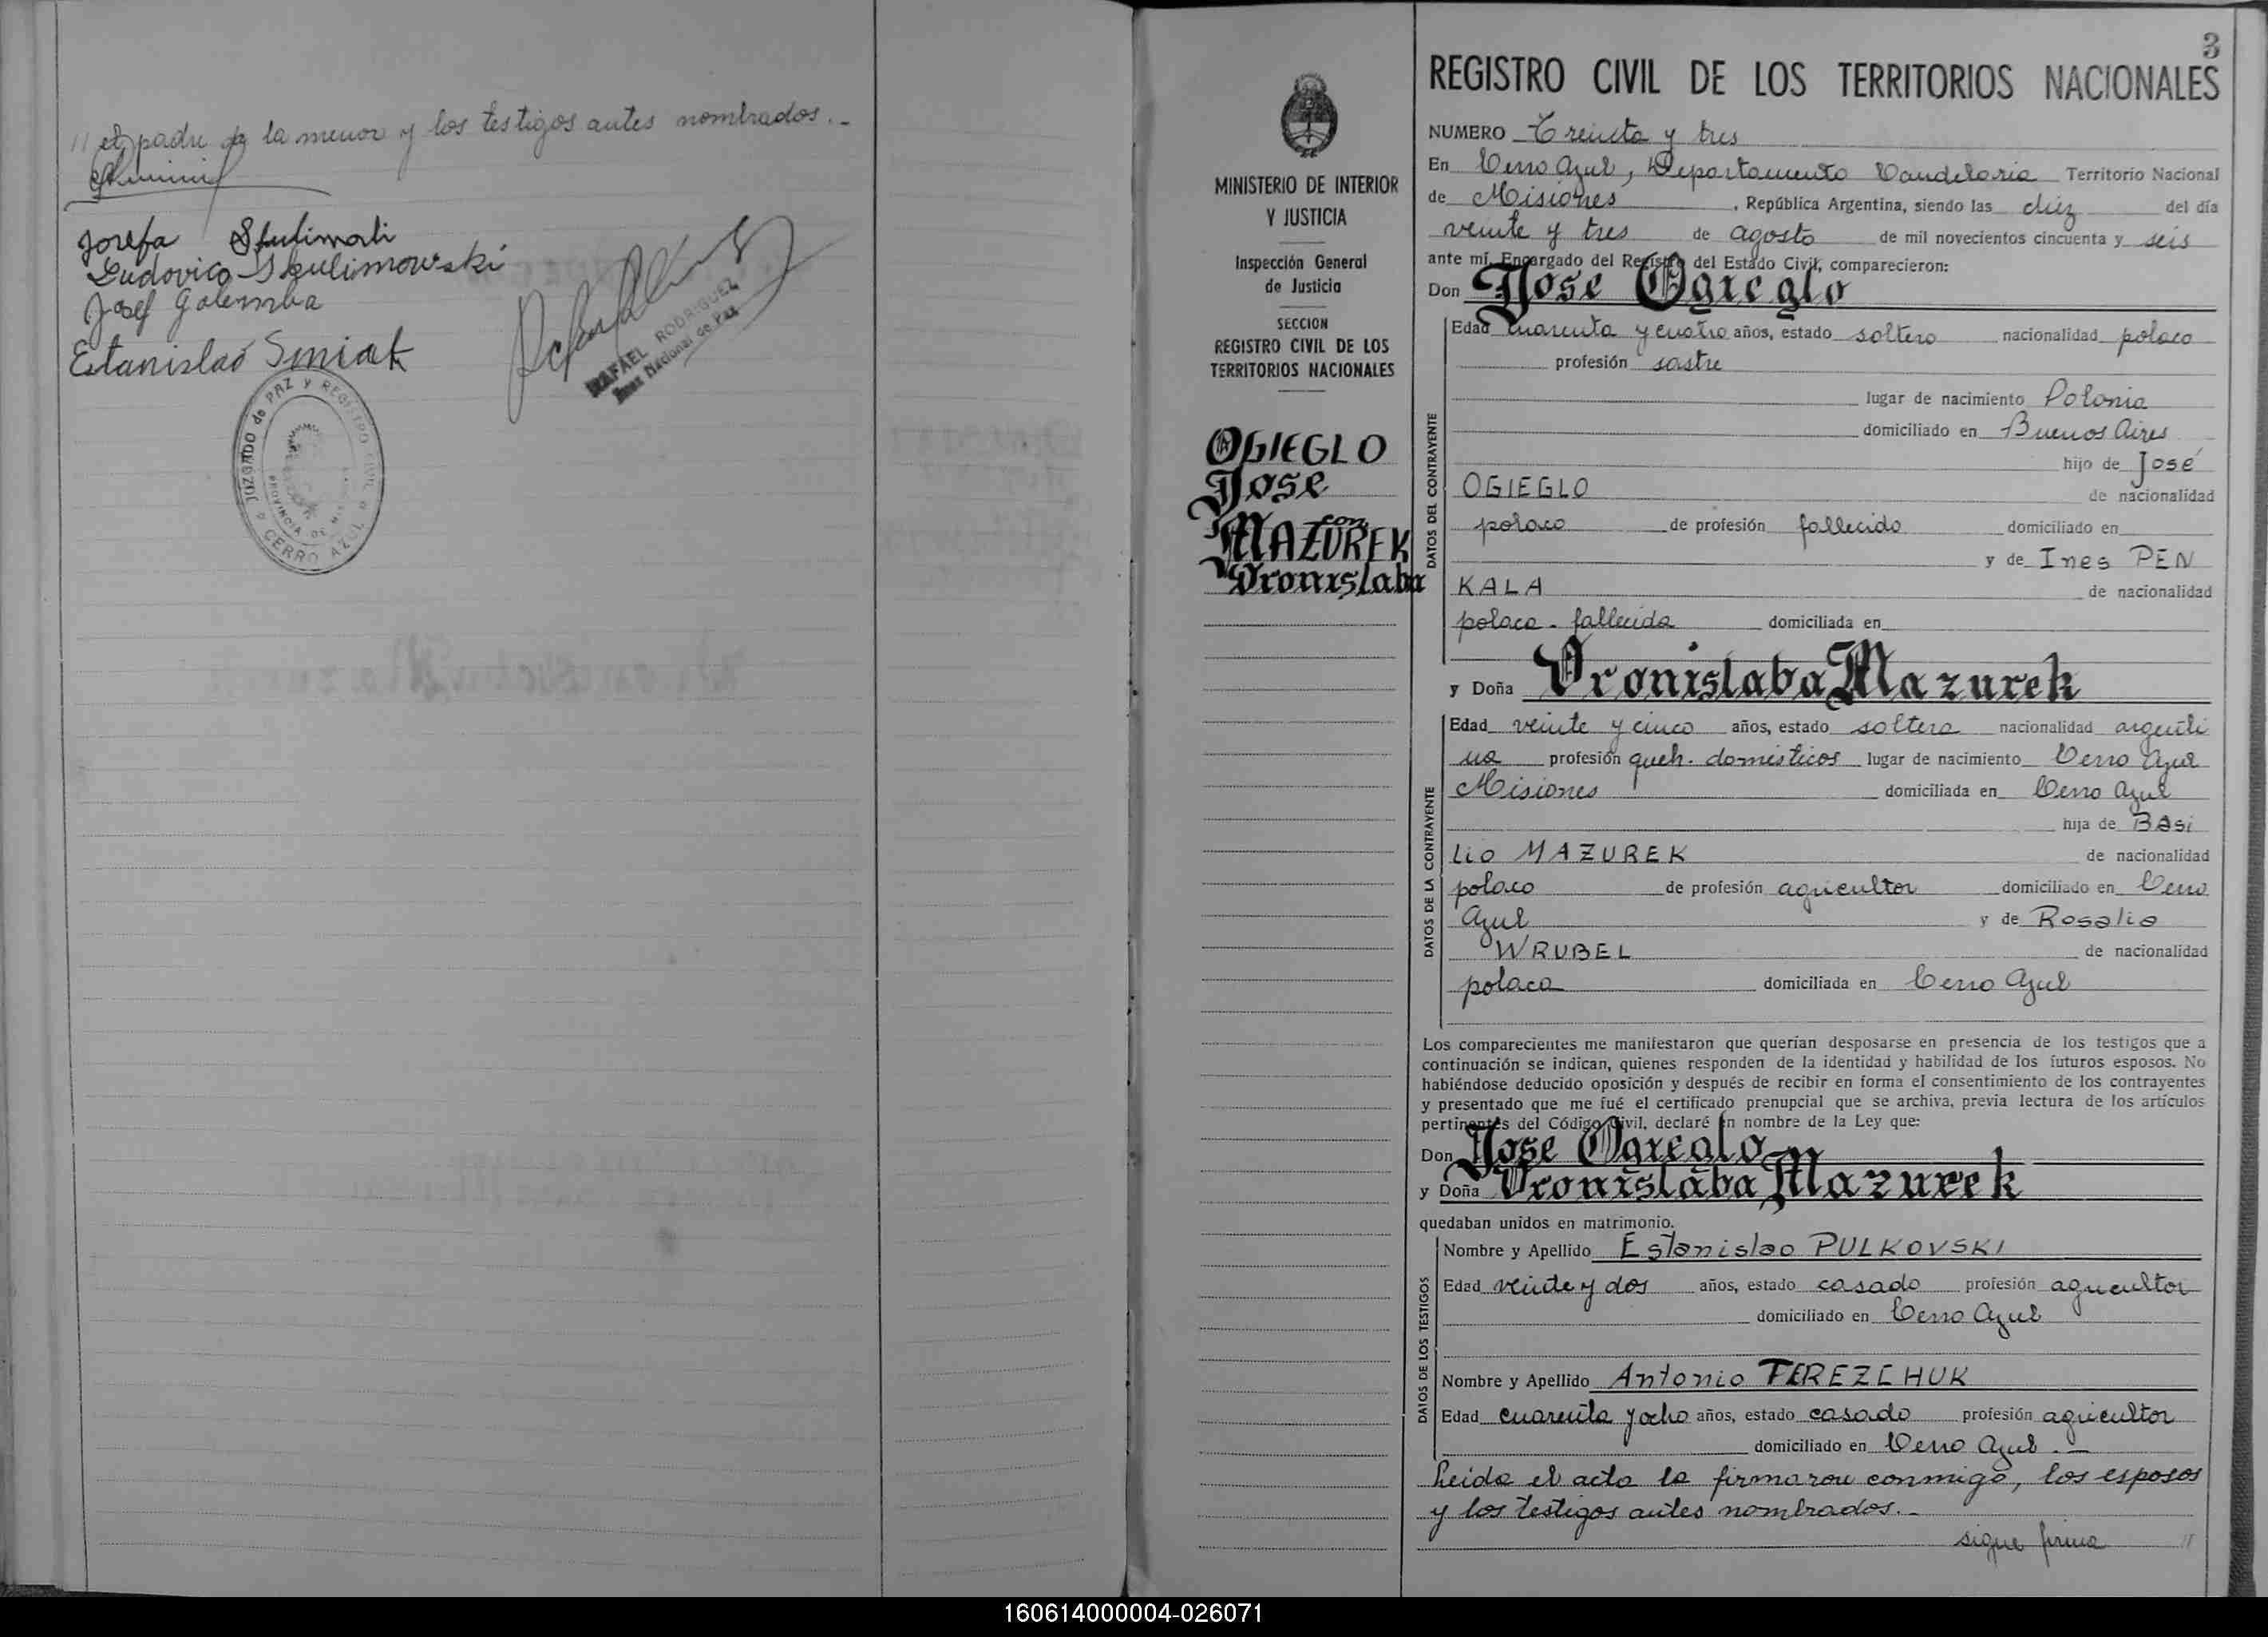 // el padre de la menor y los testigos antes nombrados.-
Josefa
Ludovico Skulimowski
Josef Golemba
Estanislao Smiak
RAFAEL RODRIGUEZ
Juez Nacional de Paz
JUZGADO de PAZ y REGISTRO CIVIL
PROVINCIA DE MISIONES
CERRO AZUL
3
REGISTRO CIVIL DE LOS TERRITORIOS NACIONALES
MINISTERIO DE INTERIOR
Y JUSTICIA
Inspección General
de Justicia
SECCION
REGISTRO CIVIL DE LOS
TERRITORIOS NACIONALES
OGIEGLO
Jose
con
MAZUREK
Vronislaba
NUMERO Treinta y tres
En Cerro Azul, Departamento Candelaria Territorio Nacional
de Misiones, República Argentina, siendo las diez del día
veinte y tres de agosto de mil novecientos cincuenta y seis
ante mí, Encargado del Registro del Estado Civil, comparecieron:
Don Jose Ogieglo
DATOS DEL CONTRAYENTE
Edad cuarenta y cuatro años, estado soltero nacionalidad polaco
profesión sastre
lugar de nacimiento Polonia
domiciliado en Buenos Aires
hijo de José
OGIEGLO de nacionalidad
polaco de profesión fallecido domiciliado en
y de Ines PEN
KALA de nacionalidad
polaca - fallecida domiciliada en
y Doña Vronislaba Mazurek
DATOS DE LA CONTRAYENTE
Edad veinte y cinco años, estado soltera nacionalidad argenti
na profesión queh. domésticos lugar de nacimiento Cerro Azul
Misiones domiciliada en Cerro Azul
hija de BAsi
lio MAZUREK de nacionalidad
polaco de profesión agricultor domiciliado en Cerro
Azul y de Rosalia
WRUBEL de nacionalidad
polaca domiciliada en Cerro Azul
Los comparecientes me manifestaron que querían desposarse en presencia de los testigos que a
continuación se indican, quienes responden de la identidad y habilidad de los futuros esposos. No
habiéndose deducido oposición y después de recibir en forma el consentimiento de los contrayentes
y presentado que me fué el certificado prenupcial que se archiva, previa lectura de los artículos
pertinentes del Código Civil, declaré en nombre de la Ley que:
Don Jose Ogieglo
y Doña Vronislaba Mazurek
quedaban unidos en matrimonio.
DATOS DE LOS TESTIGOS
Nombre y Apellido Estanislao PULKOVSKI
Edad veinte y dos años, estado casado profesión agricultor
domiciliado en Cerro Azul
Nombre y Apellido Antonio TEREZCHUK
Edad cuarenta y ocho años, estado casado profesión agricultor
domiciliado en Cerro Azul.-
Leida el acta la firmaron conmigo, los esposos
y los testigos antes nombrados.-
sigue firma //
160614000004-026071